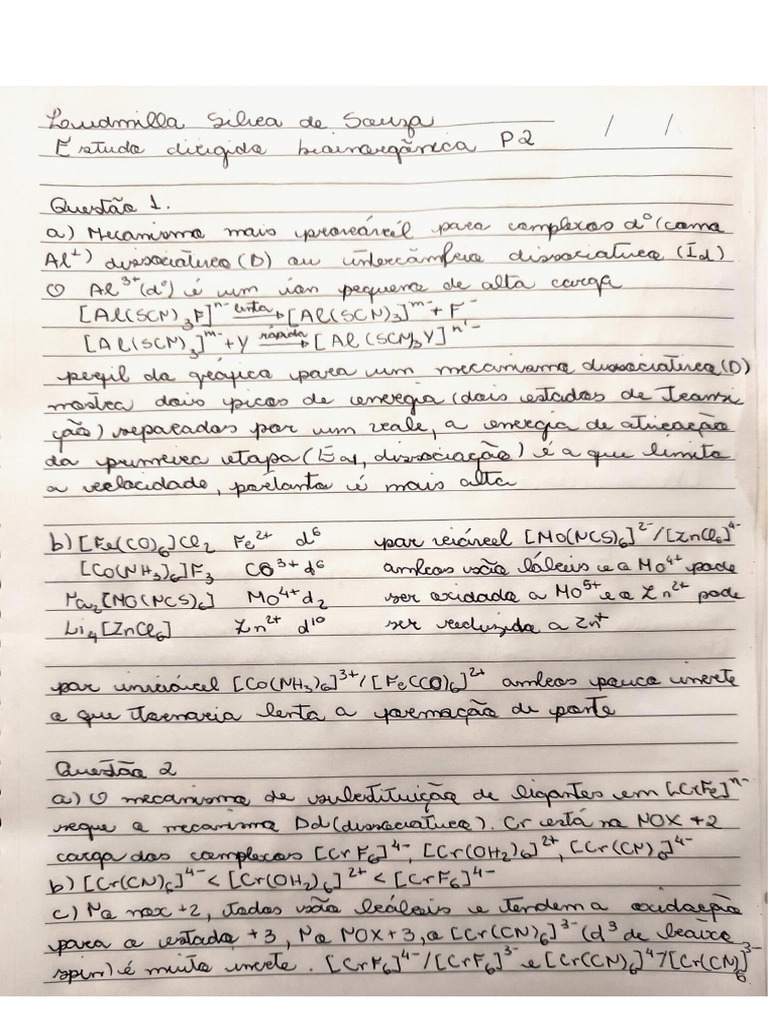 Loudmilla Silva de Souza / /
Estudo dirigido bioinorgânica P2
Questão 1.
a) Mecanismo mais provável para complexos d⁰ (como
Al³⁺) dissociativo (D) ou intercâmbio dissociativo (Id)
O Al³⁺(d⁰) é um íon pequeno de alta carga
[Al(SCN)₃F]ⁿ⁻ lenta→ [Al(SCN)₃]ᵐ⁻ + F⁻
[Al(SCN)₃]ᵐ⁻ + Y rápida→ [Al(SCN)₃Y]ⁿ'⁻
perfil do gráfico para um mecanismo dissociativo (D)
mostra dois picos de energia (dois estados de transi
ção) separados por um vale, a energia de ativação
da primeira etapa (Ea1, dissociação) é a que limita
a velocidade, portanto é mais alta
b) [Fe(CO)₆]Cl₂ Fe²⁺ d⁶ par viável [Mo(NCS)₆]²⁻/[ZnCl₆]⁴⁻
[Co(NH₃)₆]F₃ CO³⁺ d⁶ ambos são lábeis e o Mo⁴⁺ pode
Na₂[MO(NCS)₆] Mo⁴⁺ d₂ ser oxidado a Mo⁵⁺ e o Zn²⁺ pode
Li₄[ZnCl₆] Zn²⁺ d¹⁰ ser reduzido a Zn⁺
par inviável [Co(NH₃)₆]³⁺/[Fe(CO)₆]²⁺ ambos pouco inerte
o que tornaria lenta a formação de ponte
Questão 2
a) O mecanismo de substituição de ligantes em [CrF₆]ⁿ⁻
segue o mecanismo Dd (dissociativo). Cr está no NOX +2
carga dos complexos [CrF₆]⁴⁻, [Cr(OH₂)₆]²⁺, [Cr(CN)₆]⁴⁻
b) [Cr(CN)₆]⁴⁻ < [Cr(OH₂)₆]²⁺ < [CrF₆]⁴⁻
c) No nox +2, todos são lábeis e tendem a oxidação
para o estado +3, No NOX +3, o [Cr(CN)₆]³⁻ (d³ de baixo
spin) é muito inerte. [CrF₆]⁴⁻/[CrF₆]³⁻ e [Cr(CN)₆]⁴⁻/[Cr(CN)₆]³⁻